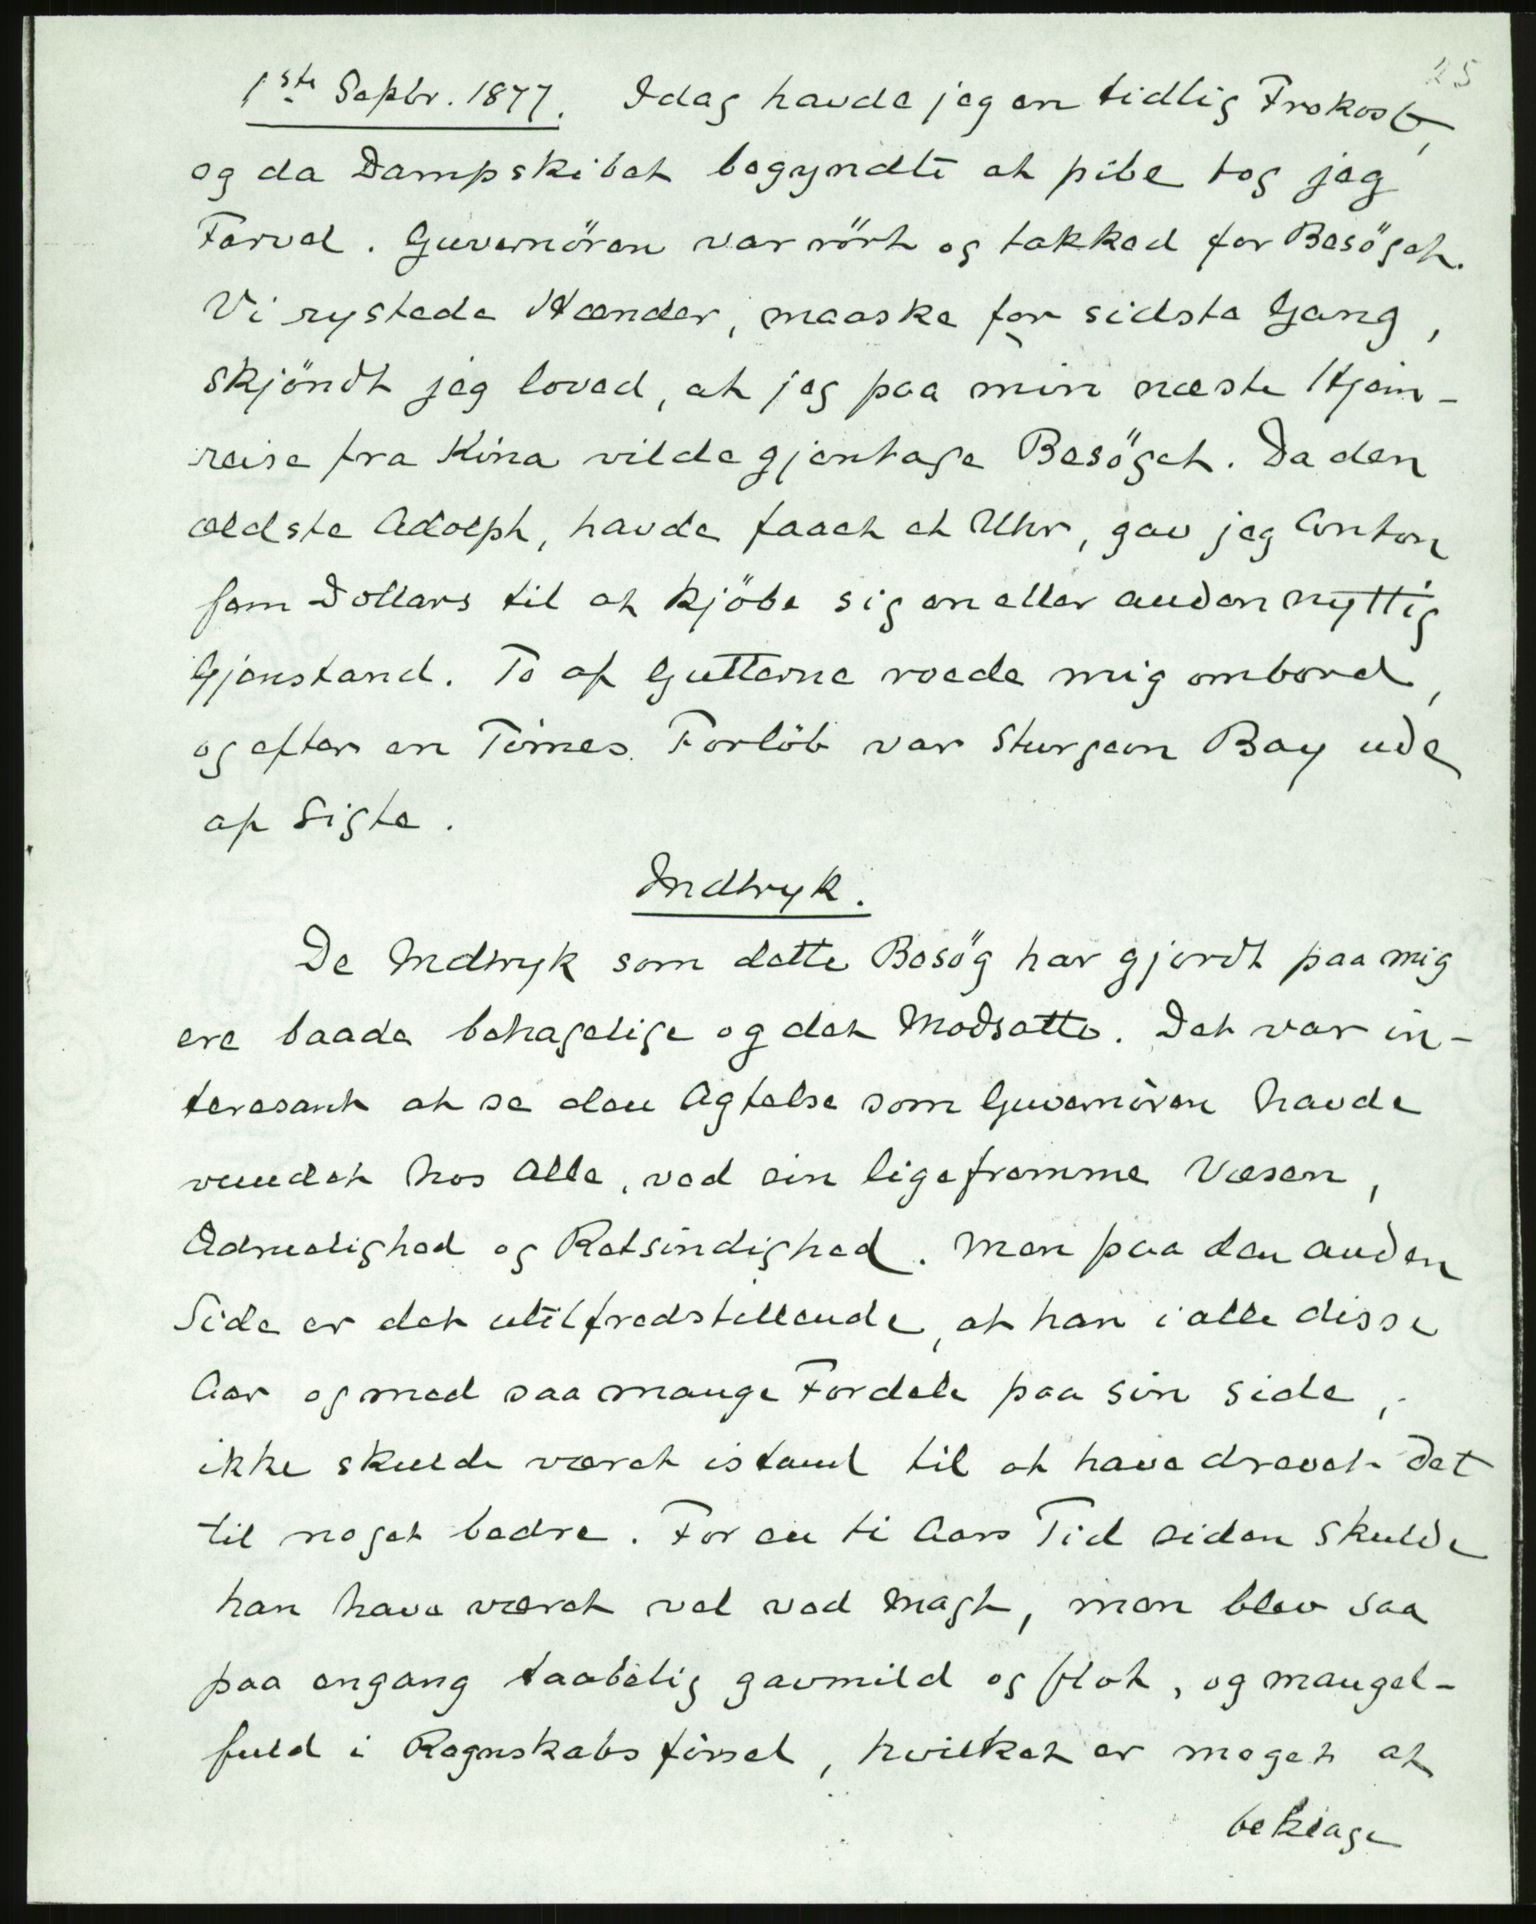 25
1ste Septbr. 1877. Idag havde jeg en tidlig Frokost,
og da Dampskibet begyndte at pibe tog jeg
Farvel. Guvernören var rört og takked for Besöget.
Vi rystede Hænder, maaske for sidste Gang,
skjöndt jeg loved, at jeg paa min næste Hjem-
reise fra Kina vilde gjentage Besöget. Da den
ældste Adolph, havde faaet et Uhr, gav jeg Anton
fem Dollars til at kjöbe sig en eller anden nyttig
Gjenstand. To af Gutterne roede mig ombord,
og efter en Times Forlöb var Sturgeon Bay ude
af Sigte.
Indtryk.
De Indtryk som dette Besög har gjordt paa mig
ere baade behagelige og det Modsatte. Det var in-
teresant at se den Agtelse som Guvernören havde
vundet hos Alle, ved sin ligefremme Væsen,
Ædruelighed og Retsindighed. Men paa den anden
Side er det utilfredstillende, at han i alle disse
Aar og med saa mange Fordele paa sin Side,
ikke skulde været istand til at have drevet det
til noget bedre. For en ti Aars Tid siden skulde
han have været vel ved Magt, men blev saa
paa engang taabelig gavmild og flot, og mangel-
fuld i Regnskabsförsel, hvilket er meget at
beklage